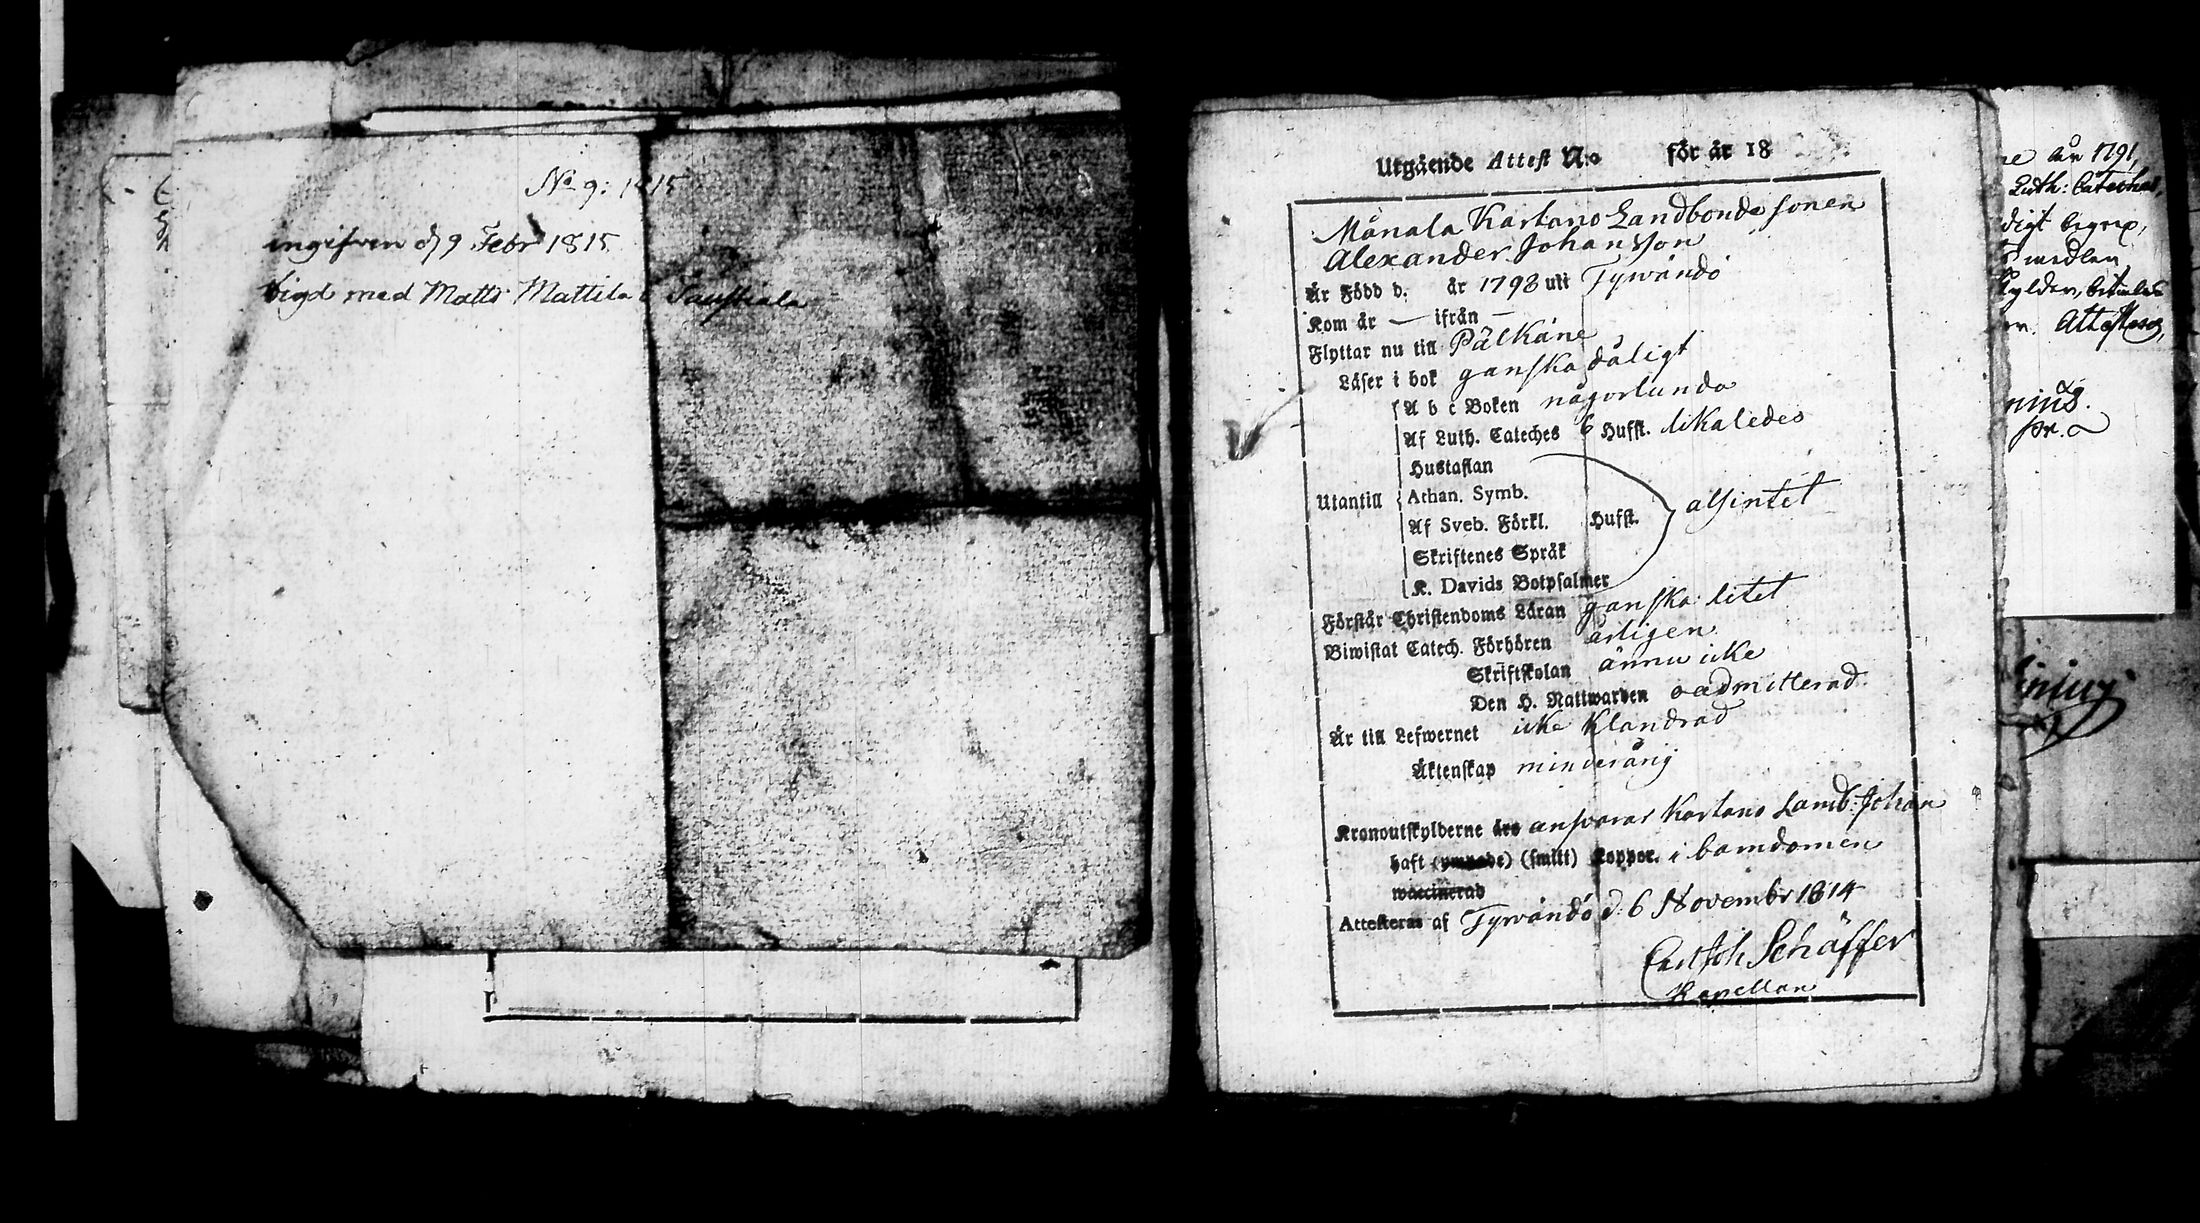 No 9: 1815
ingifven d 9 Febr 1815
Vigd med Matts Mattila i
Utgående Attest N:o för år 18
Månala Kartano Landbonde sonen
Alexander Johansson
Är Född d. år 1798 uti Tyrwändö
Kom år — ifrån —
Flyttar nu till Pälkäne
Läser i bok ganska dåligt
A b c Boken någorlunda
Af Luth. Cateches 6 Hufst. likaledes
Hustaflan
Utantill Athan. Symb. alsintet
Af Sveb. Förkl. Hufst.
Skriftenes Språk
K. Davids Botpsalmer
Förstår Christendoms Läran ganska litet
Biwistat Catech. Förhören årligen
Skriftskolan ännu icke
Den H. Nattwarden oadmitterad
Är till Lefwernet icke klandrad
Äktenskap minderårig
Kronoutskylderne års answarar Kartano Landb: Johan
haft (ympade) (smitt) koppor. i barndomen
waccinerad
Attesteras af Tyrwändö d. 6 Novembr 1814
Carl Joh Schäffer
Kapellan
år 1791,
Luth: Cateches,
digt begrep,
medlen
Attesteras,